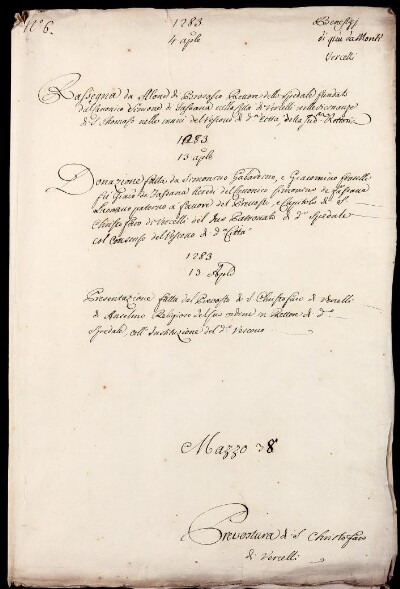 N.º 6.
1283
4 aple
Benefizj
di quà da Monti
Vercelli
Rassegna da Mone di Brovasio Rettore dello Spedale fondato
dal Canonico Simone di Fassana nella Città di Vercelli nelle vicinanze
di S. Thomaso nelle mani del Vescovo di d.ª Città, della sud.ª Rettoria
1283
13 aple
Donazione fatta da Simonino Galardino, e Giacomino fratelli
fù Giacº da Fassana Heredi del Canonico Simonino da Fassana
Loro avo paterno a favore del Prevosto, e Capitolo di S.
Christoforo di Vercelli del Jus Patronato di d.º Spedale
col Consenso del Vescovo di d.ª Città
1283
13 Aple
Presentazione fatta dal Prevosto di S. Christoforo di Vercelli
di Anselmo Religioso del suo ordine in Rettore di d.º
Spedale, coll' Institozione del d.º Vescovo
Mazzo 38
Prevostura di S. Christoforo
di Vercelli